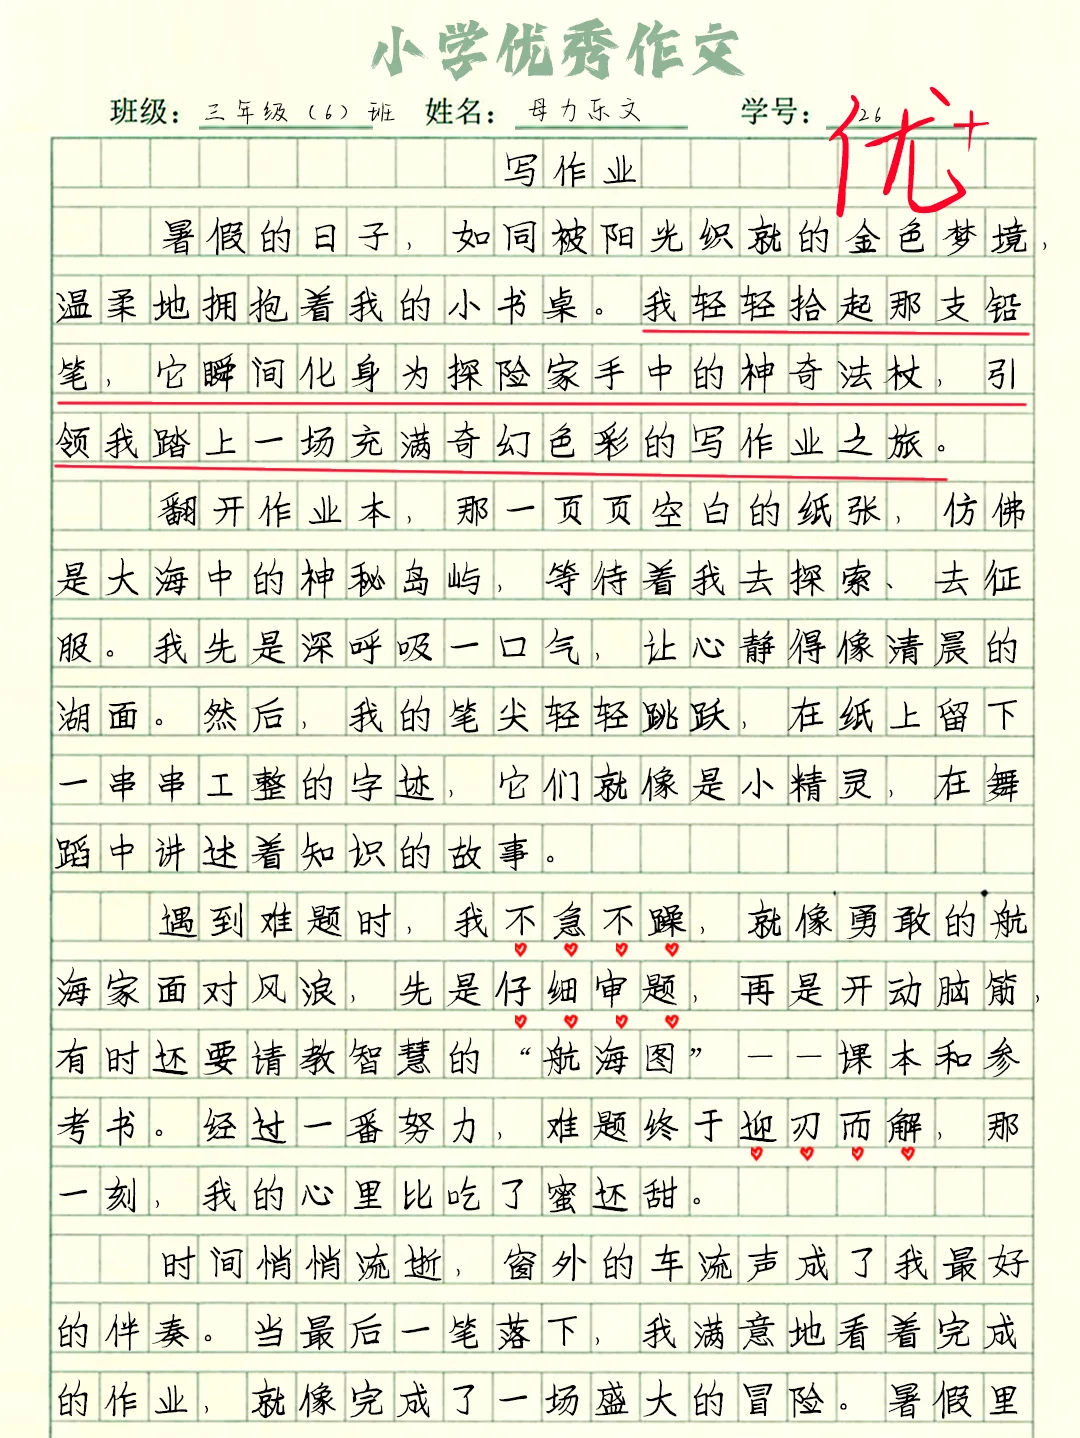 小学优秀作文
班级：三年级（6）班 姓名：母力乐文 学号：26
优+
写作业
暑假的日子，如同被阳光织就的金色梦境，
温柔地拥抱着我的小书桌。我轻轻拾起那支铅
笔，它瞬间化身为探险家手中的神奇法杖，引
领我踏上一场充满奇幻色彩的写作业之旅。
翻开作业本，那一页页空白的纸张，仿佛
是大海中的神秘岛屿，等待着我去探索、去征
服。我先是深呼吸一口气，让心静得像清晨的
湖面。然后，我的笔尖轻轻跳跃，在纸上留下
一串串工整的字迹，它们就像是小精灵，在舞
蹈中讲述着知识的故事。
遇到难题时，我不急不躁，就像勇敢的航
海家面对风浪，先是仔细审题，再是开动脑筋，
有时还要请教智慧的“航海图”——课本和参
考书。经过一番努力，难题终于迎刃而解，那
一刻，我的心里比吃了蜜还甜。
时间悄悄流逝，窗外的车流声成了我最好
的伴奏。当最后一笔落下，我满意地看着完成
的作业，就像完成了一场盛大的冒险。暑假里